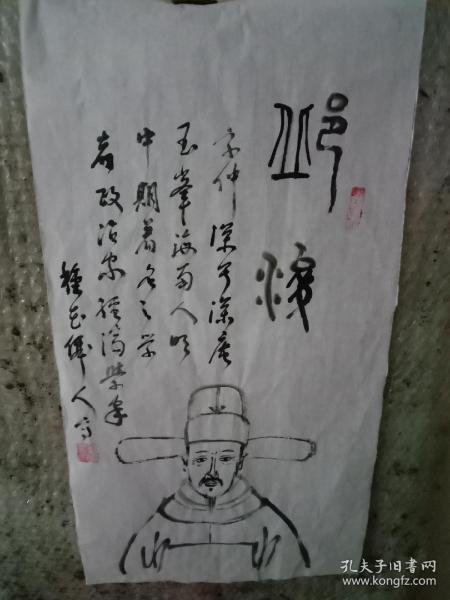 邱濬
字仲深号深庵
玉峯海南人明
中期著名之学
者政治家经济学家
种花使人
孔夫子旧书网
www.kongfz.com